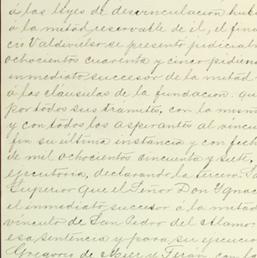 á las leyes de desvinculación hubi
á la mitad reservable de él, el fina
co Valdivielso se presentó judicial
ochocientos cuarenta y cinco pidien
inmediato succesor de la mitad
á las cláusulas de la fundacion: qu
por todos sus trámites, con la mism
y con todos los aspirantes al vincu
fin su última instancia y con fech
de mil ochocientos cincuenta y siete,
ejecutoria, declarando la tercera Sa
Superior que el Señor Don Ygnac
el inmediato sucesor á la mitad
vínculo de San Pedro del Alamo
esa sentencia y para su ejecucion
Gregorio de